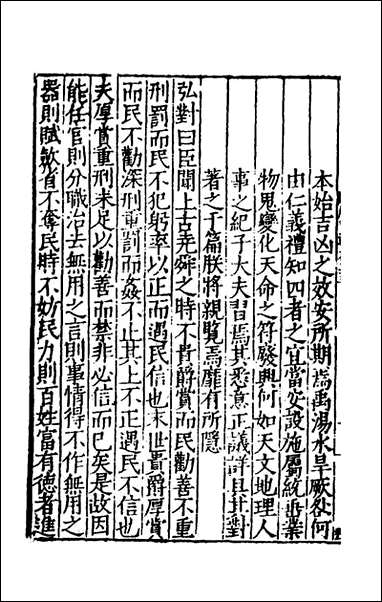 本始吉凶之效安所期焉禹湯水旱厥咎何
由仁義禮知四者之宜當安設施屬統垂業
物鬼變化天命之符廢興何如天文地理人
事之紀子大夫習焉其悉意正議詳具其對
著之于篇朕將親覽焉靡有所隱
弘對曰臣聞上古堯舜之時不貴爵賞而民勸善不重
刑罰而民不犯躬率以正而遇民信也末世貴爵厚賞
而民不勸深刑重罰而姦不止其上不正遇民不信也
夫厚賞重刑未足以勸善而禁非必信而已矣是故因
能任官則分職治去無用之言則事情得不作無用之
器則賦斂省不奪民時不妨民力則百姓富有德者進